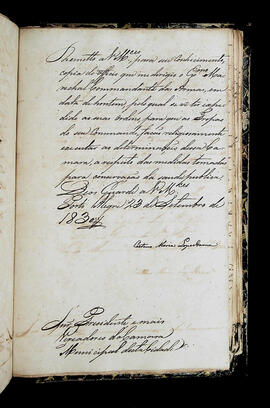 Remetto a V. M.ces, para seu conhecimento,
copia do officio que me dirigio o Ex.mo Ma-
rechal Commandante das Armas, em
data de hontem, pelo qual se vê ter expe-
dido as suas ordens para que as Tropas
do seu Commando, fação religiosamente
executar as determinações dessa Ca-
mara, a respeito das medidas tomadas
para conservação da saude publica.
Deos Guarde a V. M.ces
Porto Alegre 23 de Setembro de
183
Snr.s Presidente e mais
Vereadores da Camara
Municipal desta Cidade